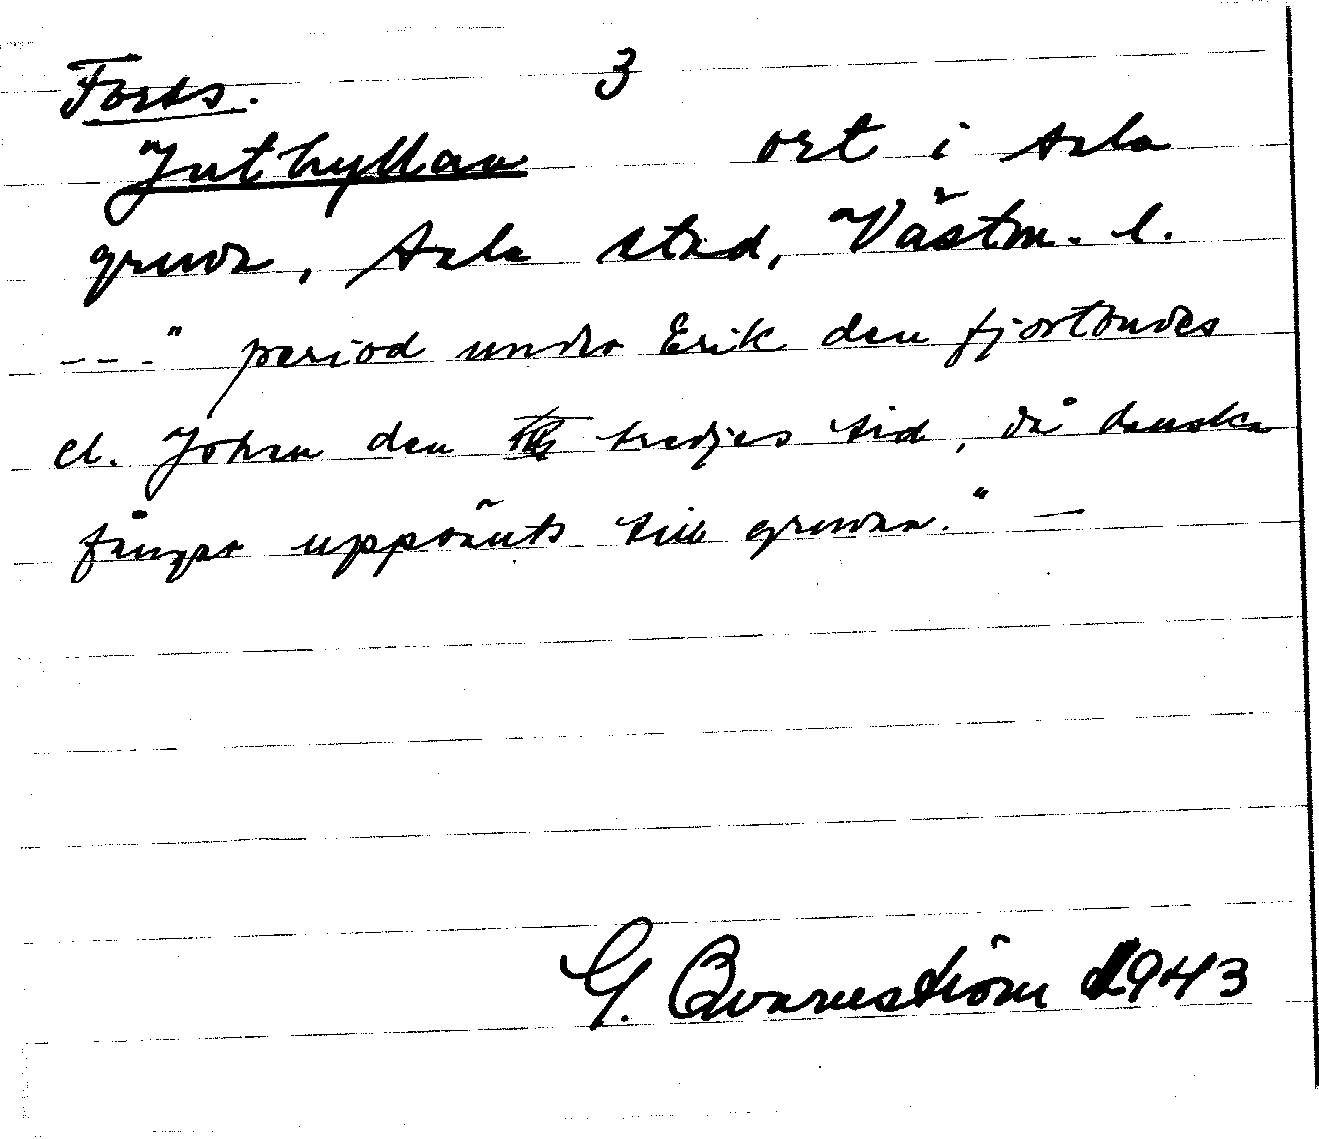 Forts. 3
Juthyllan ort i Sala
gruva, Sala stad, Västm. l.
---" period under Erik den fjortondes
el. Johan den tredjes tid, då danska
fångar uppsänts till gruvan." —
G. Qvarnström 1943